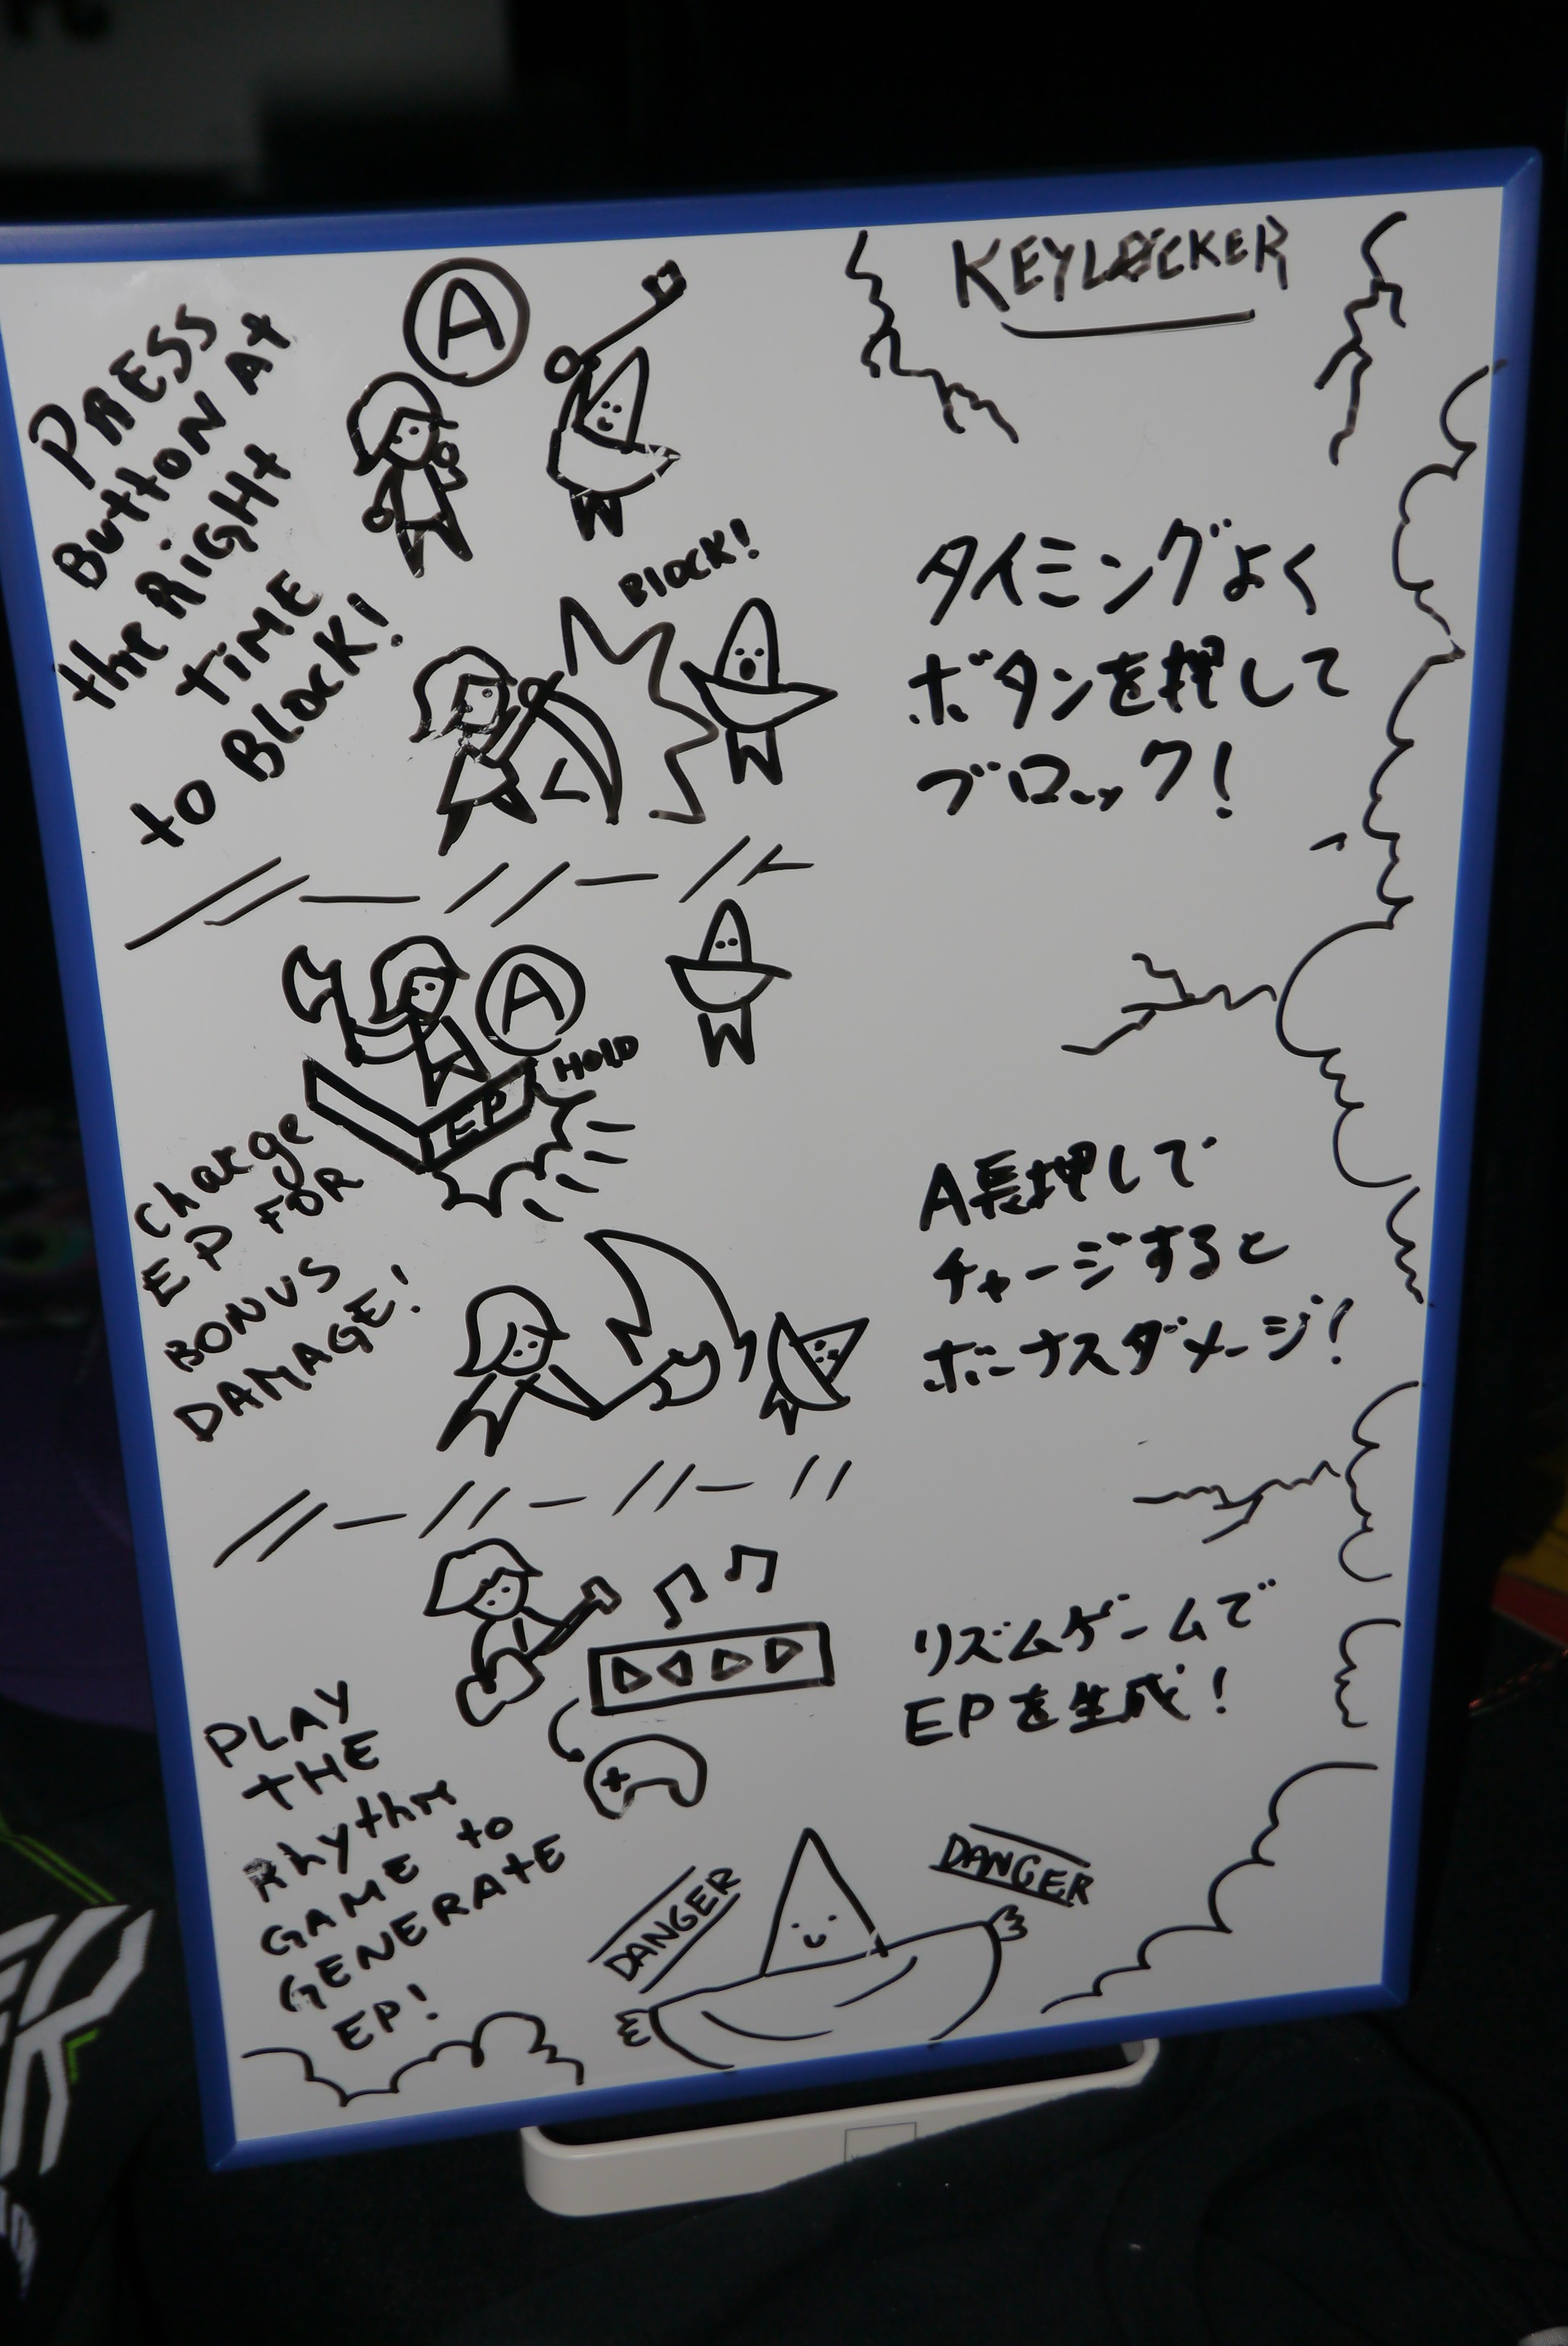 KEYLOCKER
PRESS
ButtON At
the RiGHt
tiME
to BLOCK!
A
BlOCK!
タイミングよく
ボタンを押して
ブロック!
A
HOLD
EP
charge
EP FOR
BONUS
DAMAGE!
A長押しで
チャージすると
ボーナスダメージ!
PLAY
tHE
Rhythm
GAME to
GENERAtE
EP!
リズムゲームで
EPを生成!
DANGER
DANGER